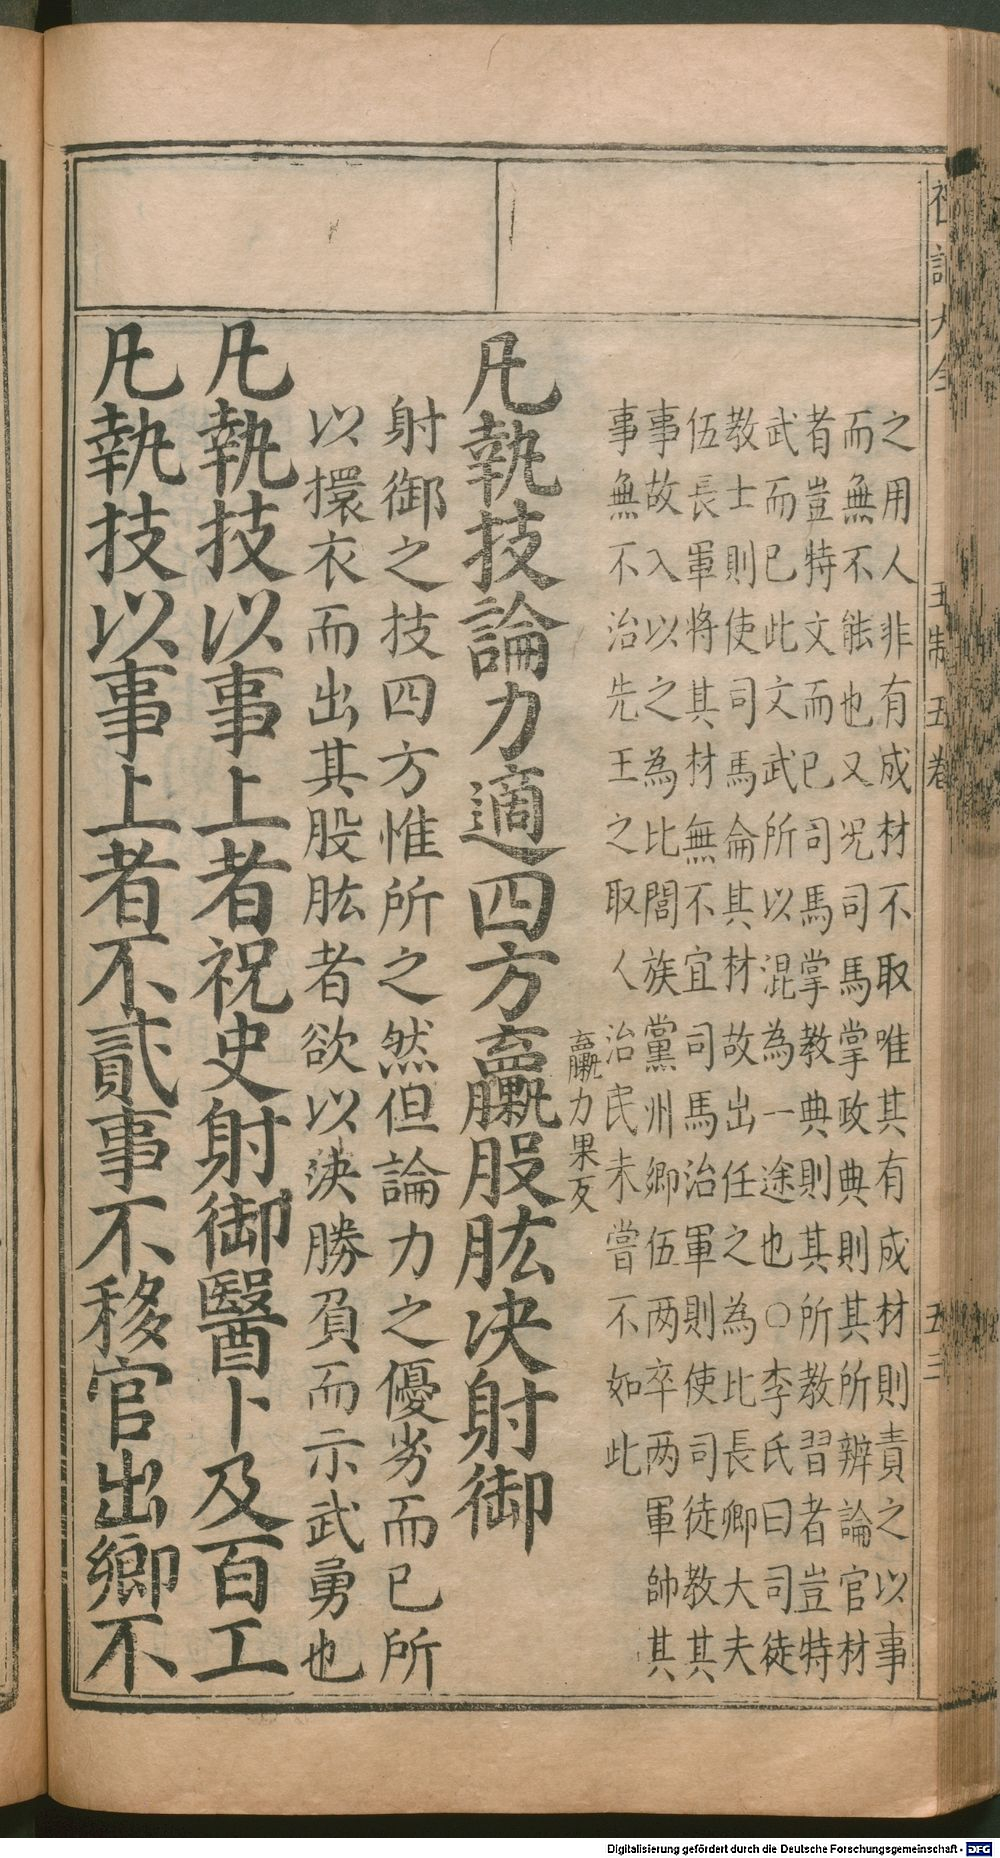 之用人非有成材不取唯其有成材則責之以事
而無不能也又况司馬掌政典則其所辨論官材
者豈特文而已司馬掌教典則其所教習者豈特
武而已此文武所以混為一途也○李氏曰司徒
教士則使司馬侖其材故出任之為比長卿大夫
伍長軍將其材無不宜司馬治軍則使司徒教其
事故入以之為比閭族黨州鄉伍两卒两軍帥其
事無不治先王之取人治民未嘗不如此
凡執技論力適四方臝股肱决射御
臝力果反
射御之技四方惟所之然但論力之優劣而已所
以擐衣而出其股肱者欲以决勝負而示武勇也
凡執技以事上者祝史射御醫卜及百工
凡執技以事上者不貳事不移官出鄉不
王制五卷
五三
Digitalisierung gefördert durch die Deutsche Forschungsgemeinschaft - DFG